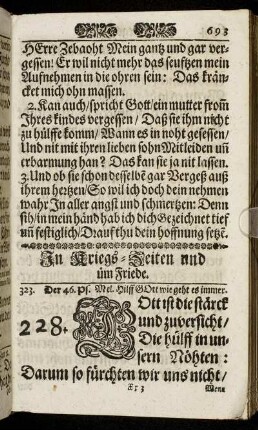 693
HErre Zebaoht Mein gantz und gar ver-
gessen! Er wil nicht mehr das seuftzen mein
Aufnehmen in die ohren sein: Das krän-
cket mich ohn massen.
2. Kan auch/spricht Gott/ein mutter from̃
Ihres kindes vergessen/ Daß sie ihm nicht
zu hülffe komm/ Wann es in noht gesessen/
Und nit mit ihren lieben sohn Mitleiden uñ
erbarmung han? Das kan sie ja nit lassen.
3. Und ob sie schon desselbẽ gar vergeß auß
ihrem hertzen/ So wil ich doch dein nehmen
wahr In aller angst und schmertzen: Denn
sih/in mein händ hab ich dich Gezeichnet tief
uñ festiglich/ Drauf thu dein hoffnung setzẽ.
In Kriegs-Zeiten und
üm Friede.
323. Der 46. Ps. Mel. Hilff GOtt wie geht es immer.
228. GOtt ist die stärck
und zuversicht/
Die hülff in un-
sern Nöhten:
Darum so fürchten wir uns nicht/
Wenn